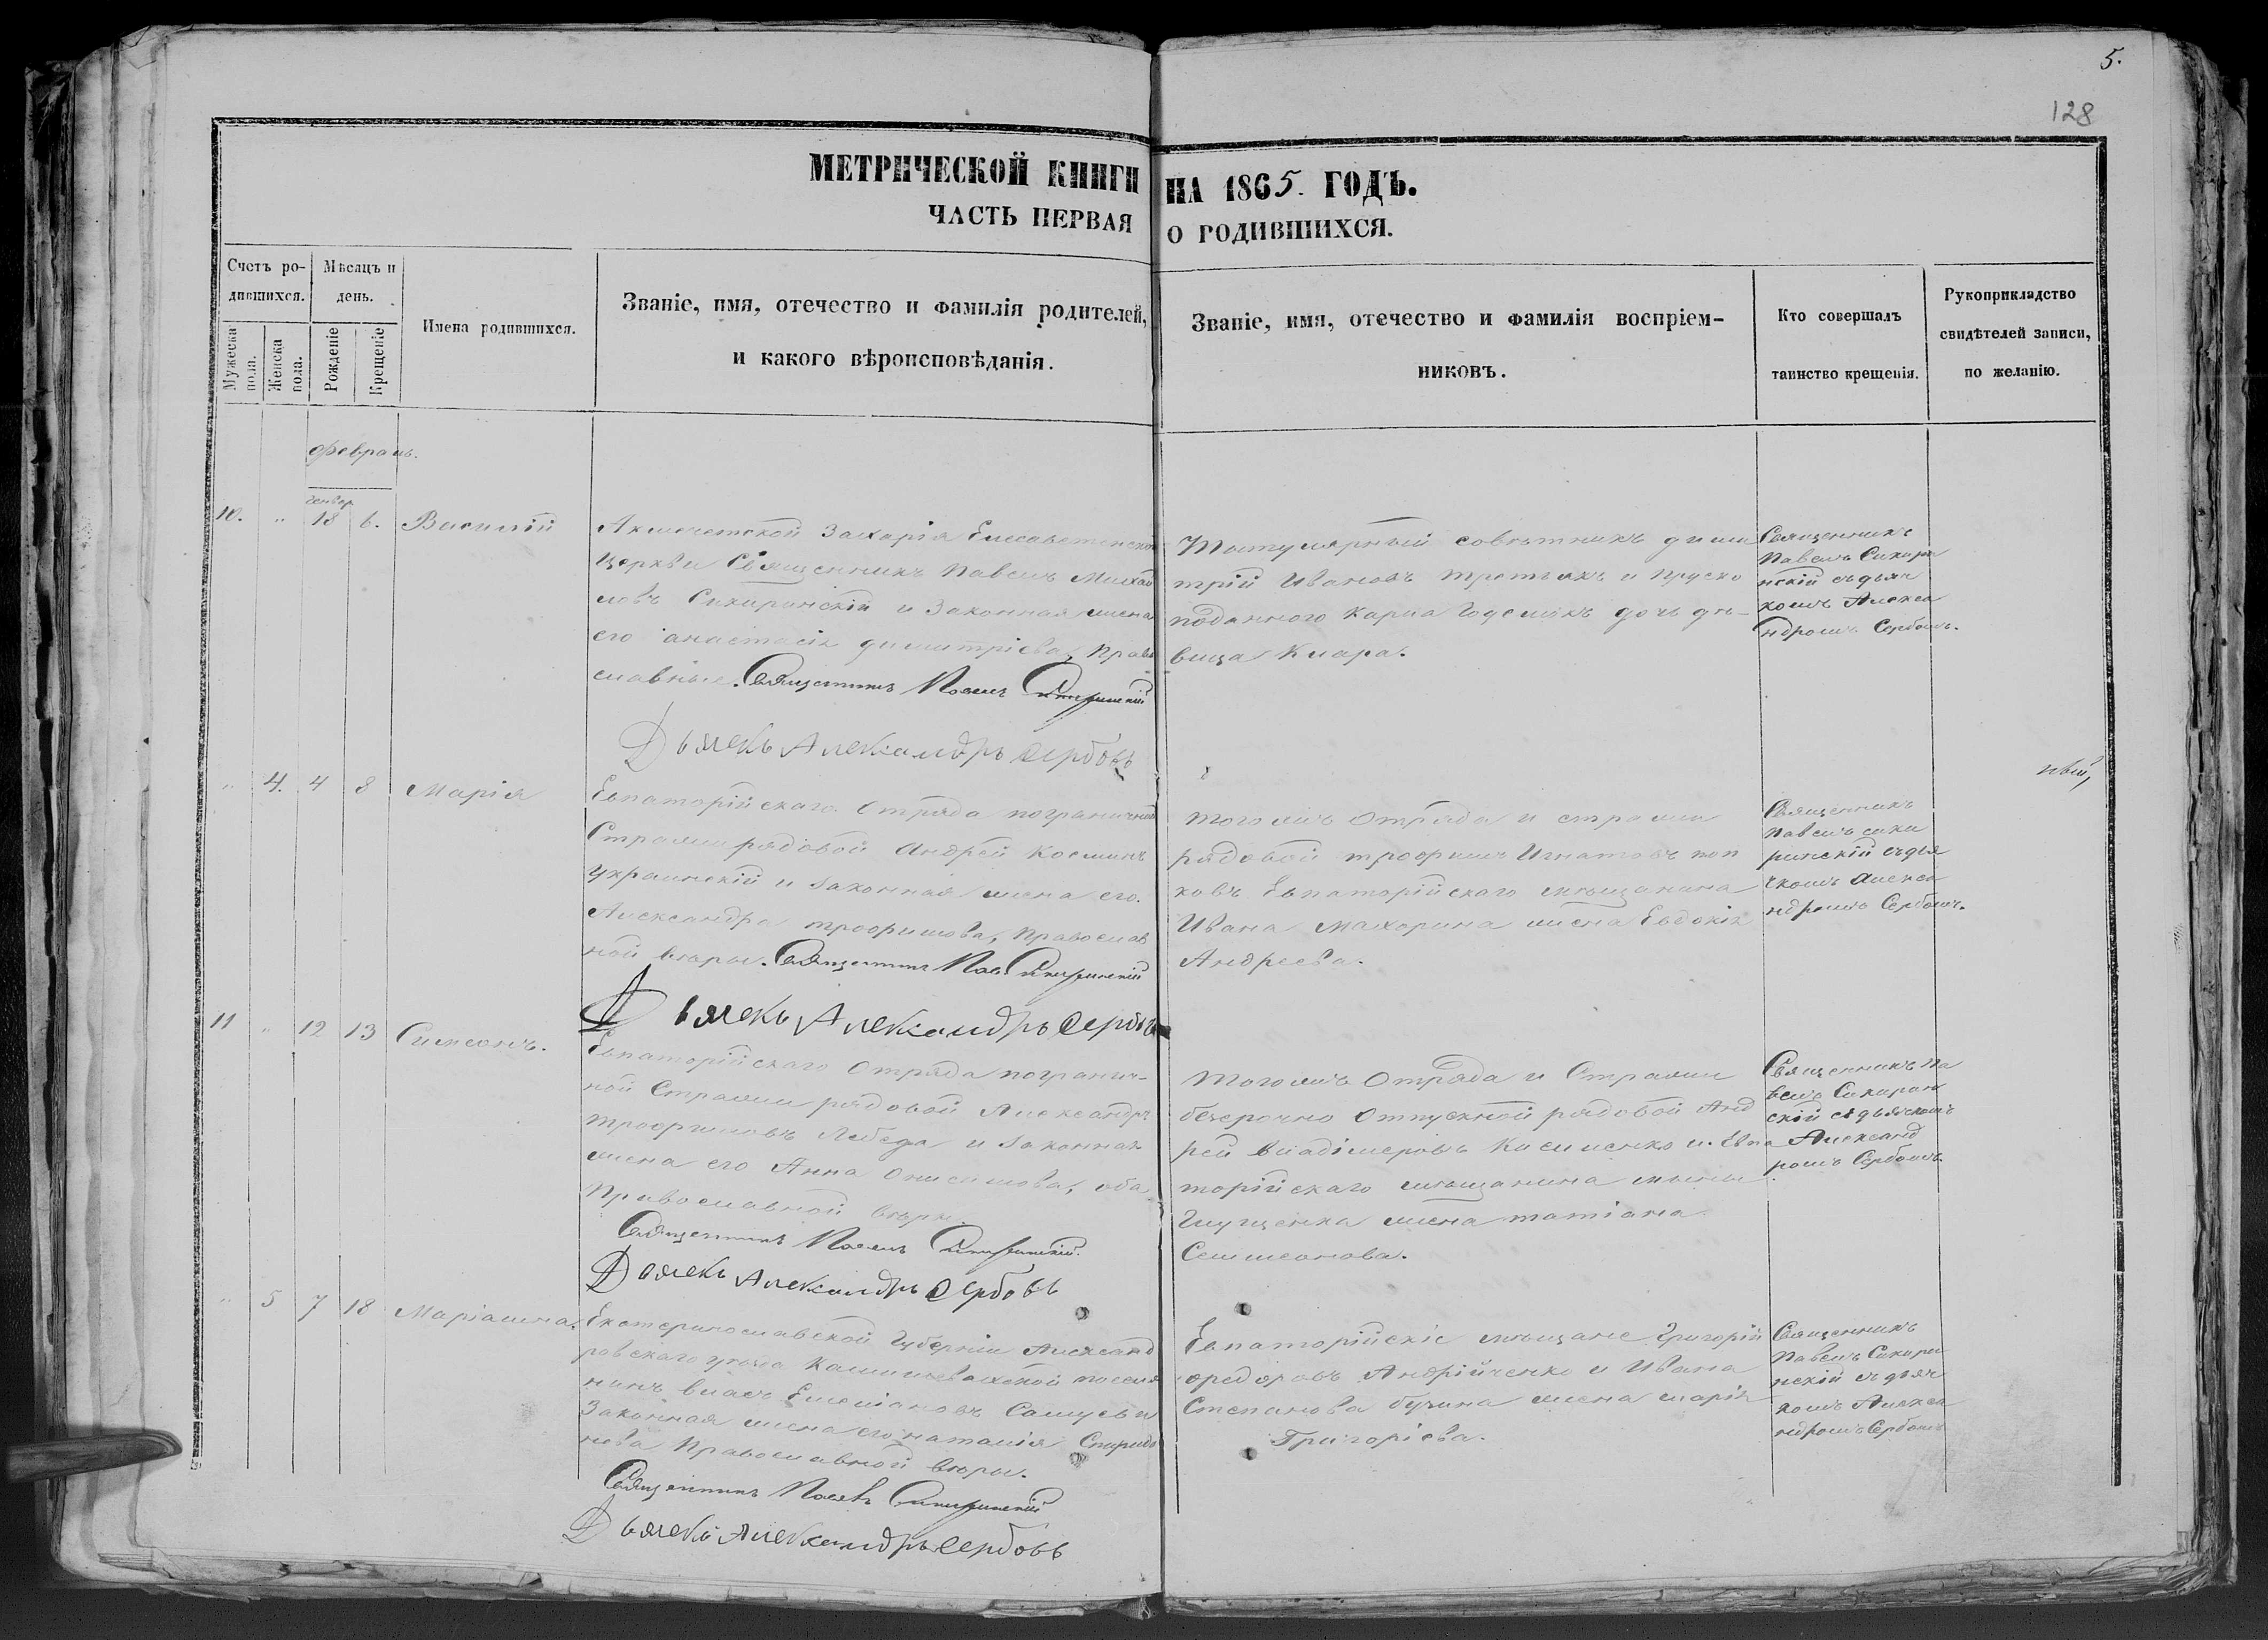 5.
128
МЕТРИЧЕСКОЙ КНИГИ НА 1865. ГОДЪ.
ЧАСТЬ ПЕРВАЯ О РОДИВШИХСЯ.
Счетъ ро-
дившихся.
Мужеска
пола.
Женска
пола.
Мѣсяцъ и
день.
Рожденіе
Крещеніе
Имена родившихся.
Званіе, имя, отечество и фамилія родителей,
и какого вѣроисповѣданія.
Званіе, имя, отечество и фамилія воспріем-
никовъ.
Кто совершалъ
таинство крещенія.
Рукоприкладство
свидѣтелей записи,
по желанію.
Февраль.
Генвар
10. " 18 6. Василій
Акмечетской Захарія Елисаветинской
Церкви Священникъ Павелъ Михаи
ловъ Сикиринскій и Законная жена
его анастасія димитріева, Право
славные. Священникъ Павелъ Сикиринскій
Дьячекъ Александръ Сербовъ
Титулярный совѣтникъ дими
трій Ивановъ третьякъ и Пруско
подданного Карла дочь дѣ-
вица Клара.
Священникъ
Павелъ Сикири
нскій съ дьяч
комъ Алекса
ндромъ Сербовъ.
" 4. 4 8 Марія
Евпаторійскаго Отряда пограничной
Стражи рядовой Андрей Косминъ
Украинскій и Законная жена его.
Александра трофимова, Православ
ной вѣры. Священникъ Пав. Сикиринскій
Дьячекъ Александръ Сербовъ
того жъ Отряда и стражи
рядовой трофимъ Игнатовъ поп
ковъ Евпаторійскаго мѣщанина
Ивана Махорина жена Евдокія
Андреева.
Священникъ
Павелъ сики
ринскій съ дья
чкомъ Алекса
ндромъ Сербовъ.
11 " 12 13 Симеонъ.
Евпаторійскаго Отряда погранич-
ной Стражи рядовой Александръ
трофимовъ Лебеда и Законная
жена его Анна Онисимова, оба
Православной вѣры.
Священникъ Павелъ Сикиринскій.
Дьячекъ Александръ Сербовъ
того жъ Отряда и Стражи
безсрочно Отпускной рядовой Анд
рей владімеровъ и. Евпа
торійскаго мѣщанина
жена татіана
Симеонова.
Священникъ Па
велъ Сикирин
скій съ дьячкомъ
Александ
ромъ Сербовъ.
" 5 7 18 Маріамна.
Екатеринославской Губерніи Александ
ровскаго уѣзда поселя
нинъ власъ Емеліановъ и
Законная жена его наталія Спиридо
нова Православной вѣры.
Священникъ Павелъ Сикиринскій
Дьячекъ Александръ Сербовъ
Евпаторійскіе мѣщане Григорій
ѳедоровъ Андрійченко и Ивана
Степанова жена марія
Григоріева.
Священникъ
Павелъ Сикири
нскій съ дьяч
комъ Алекса
ндромъ Сербовъ